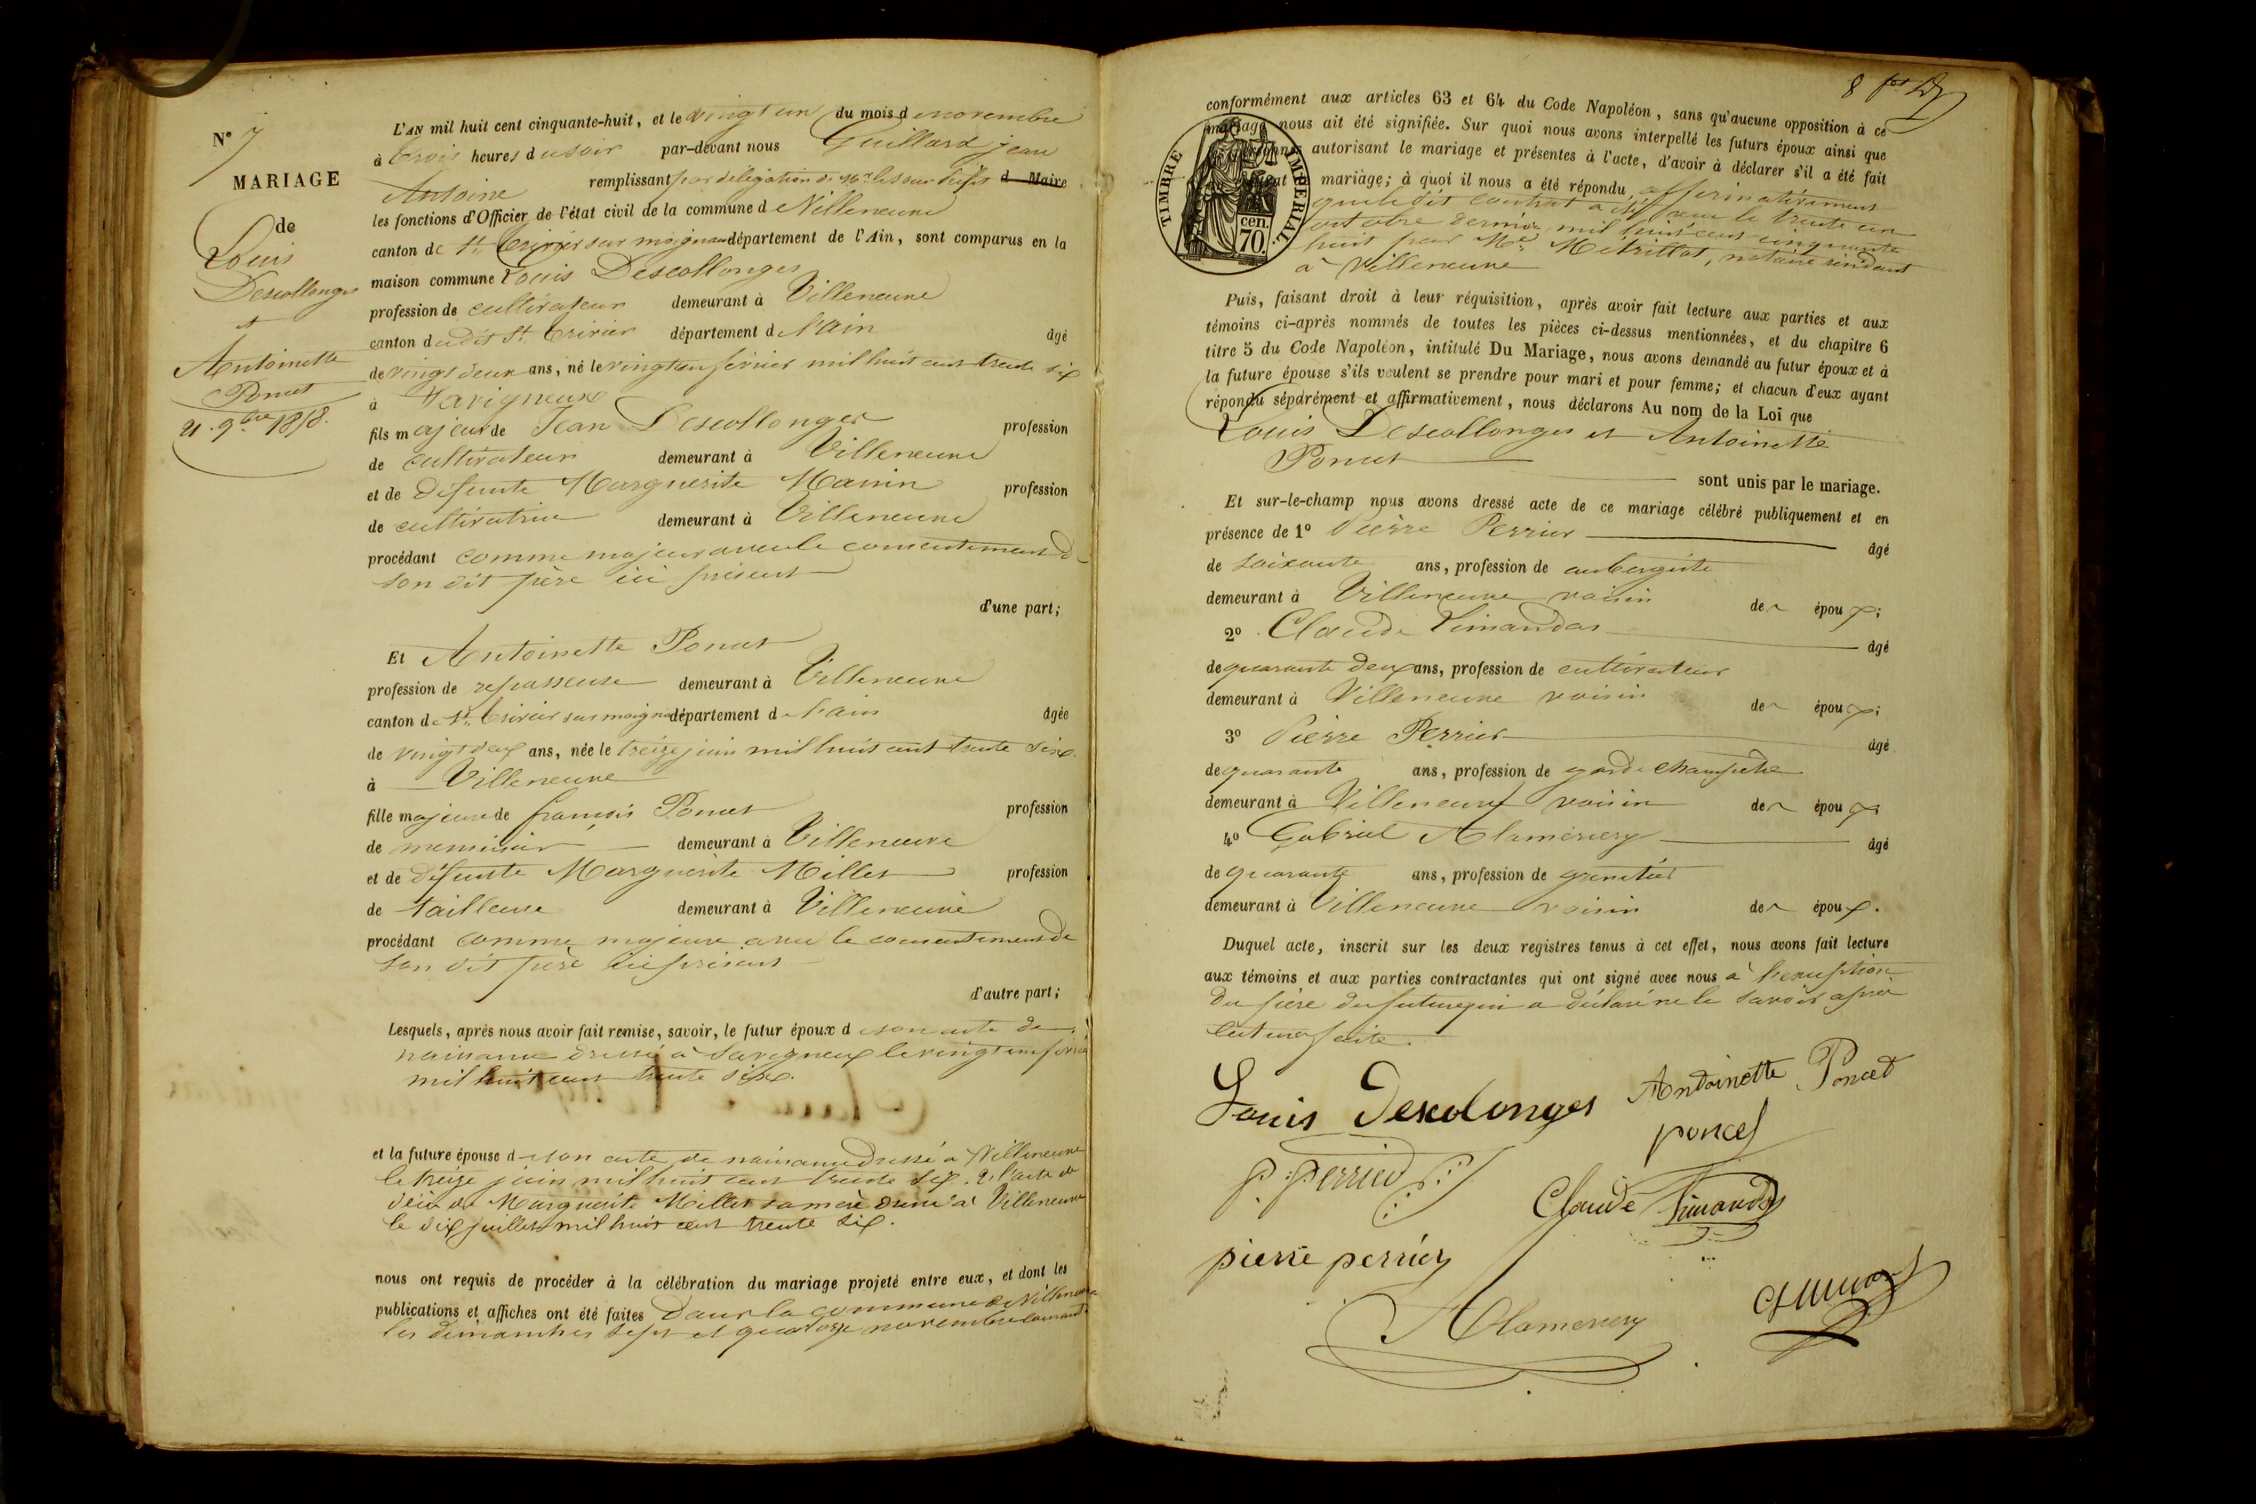 N° 7
MARIAGE
de
Louis
Descollonges
et
Antoinette
Poncet
21. 9bre 1858.
L'AN mil huit cent cinquante-huit, et le vingt un du mois de novembre
à trois heures du soir par-devant nous Guillard jean
Antoine remplissant par délégation de Mr le d Maire
les fonctions d'Officier de l'état civil de la commune de Villeneuve
canton de St Trivier sur moignans département de l'Ain, sont comparus en la
maison commune Louis Descollonges
profession de cultivateur demeurant à Villeneuve
canton dudit St Trivier département de l'Ain âgé
de vingt deux ans, né le vingt un février mil huit cent trente six
à Savigneux
fils majeur de Jean Descollonges profession
de cultivateur demeurant à Villeneuve
et de défunte Marguerite Manin profession
de cultivatrice demeurant à Villeneuve
procédant comme majeur avec le consentement de
son dit père ici présent
d'une part;
Et Antoinette Poncet
profession de repasseuse demeurant à Villeneuve
canton de St Trivier sur moignans département de l'ain âgée
de vingt deux ans, née le treize juin mil huit cent trente six
à Villeneuve
fille majeure de françois Poncet profession
de menuisier demeurant à Villeneuve
et de défunte Marguerite Millet profession
de tailleuse demeurant à Villeneuve
procédant comme majeure avec le consentement de
son dit père ici présent
d'autre part;
Lesquels, après nous avoir fait remise, savoir, le futur époux de son acte de
naissance dressé à Savigneux le vingt un février
mil huit cent trente six.
et la future épouse de son acte de naissance dressé à Villeneuve
le treize juin mil huit cent trente six. 2° l'acte de
décès de Marguerite Millet sa mère dressé à Villeneuve
le dix juillet mil huit cent trente six.
nous ont requis de procéder à la célébration du mariage projeté entre eux, et dont les
publications et affiches ont été faites Dans la commune de Villeneuve
les dimanches sept et quatorze novembre courant
8
conformément aux articles 63 et 64 du Code Napoléon, sans qu'aucune opposition à ce
mariage nous ait été signifiée. Sur quoi nous avons interpellé les futurs époux ainsi que
personnes autorisant le mariage et présentes à l'acte, d'avoir à déclarer s'il a été fait
mariage; à quoi il nous a été répondu affirmativement
que le dit contrat a été reçu le trente un
octobre dernier mil huit cent cinquante
huit par Me Métrillot, notaire résidant
à Villeneuve
TIMBRE IMPÉRIAL.
cen.
70.
Puis, faisant droit à leur réquisition, après avoir fait lecture aux parties et aux
témoins ci-après nommés de toutes les pièces ci-dessus mentionnées, et du chapitre 6
titre 5 du Code Napoléon, intitulé Du Mariage, nous avons demandé au futur époux et à
la future épouse s'ils veulent se prendre pour mari et pour femme; et chacun d'eux ayant
répondu séparément et affirmativement, nous déclarons Au nom de la Loi que
Louis Descollonges et Antoinette
Poncet
sont unis par le mariage.
Et sur-le-champ nous avons dressé acte de ce mariage célébré publiquement et en
présence de 1° Pierre Perrier âgé
de soixante ans, profession de aubergiste
demeurant à Villeneuve voisin des époux;
2° Claude Limandas âgé
de quarante deux ans, profession de cultivateur
demeurant à Villeneuve voisin des époux;
3° Pierre Perrier âgé
de quarante ans, profession de garde champêtre
demeurant à Villeneuve voisin des époux;
4° Gabriel Alamercery âgé
de quarante ans, profession de grenetier
demeurant à Villeneuve voisin des époux.
Duquel acte, inscrit sur les deux registres tenus à cet effet, nous avons fait lecture
aux témoins et aux parties contractantes qui ont signé avec nous à l'exception
du père du futur qui a déclaré ne le savoir après
lecture faite.
Louis Descolonges Antoinette Poncet
poncet
P. perrier
Claude Limandas
pierre perrier
Alamercery